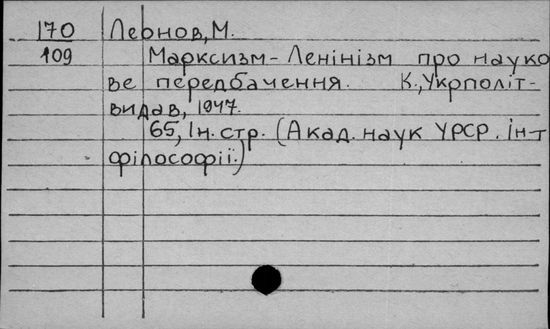 170 Леонов, М.
109 Марксизм-Ленінізм про науко
ве передбачення. К., Укрполіт-
видав, 1947.
65, Ін. стр. (Акад. наук УРСР. Ін-т
філософії.)